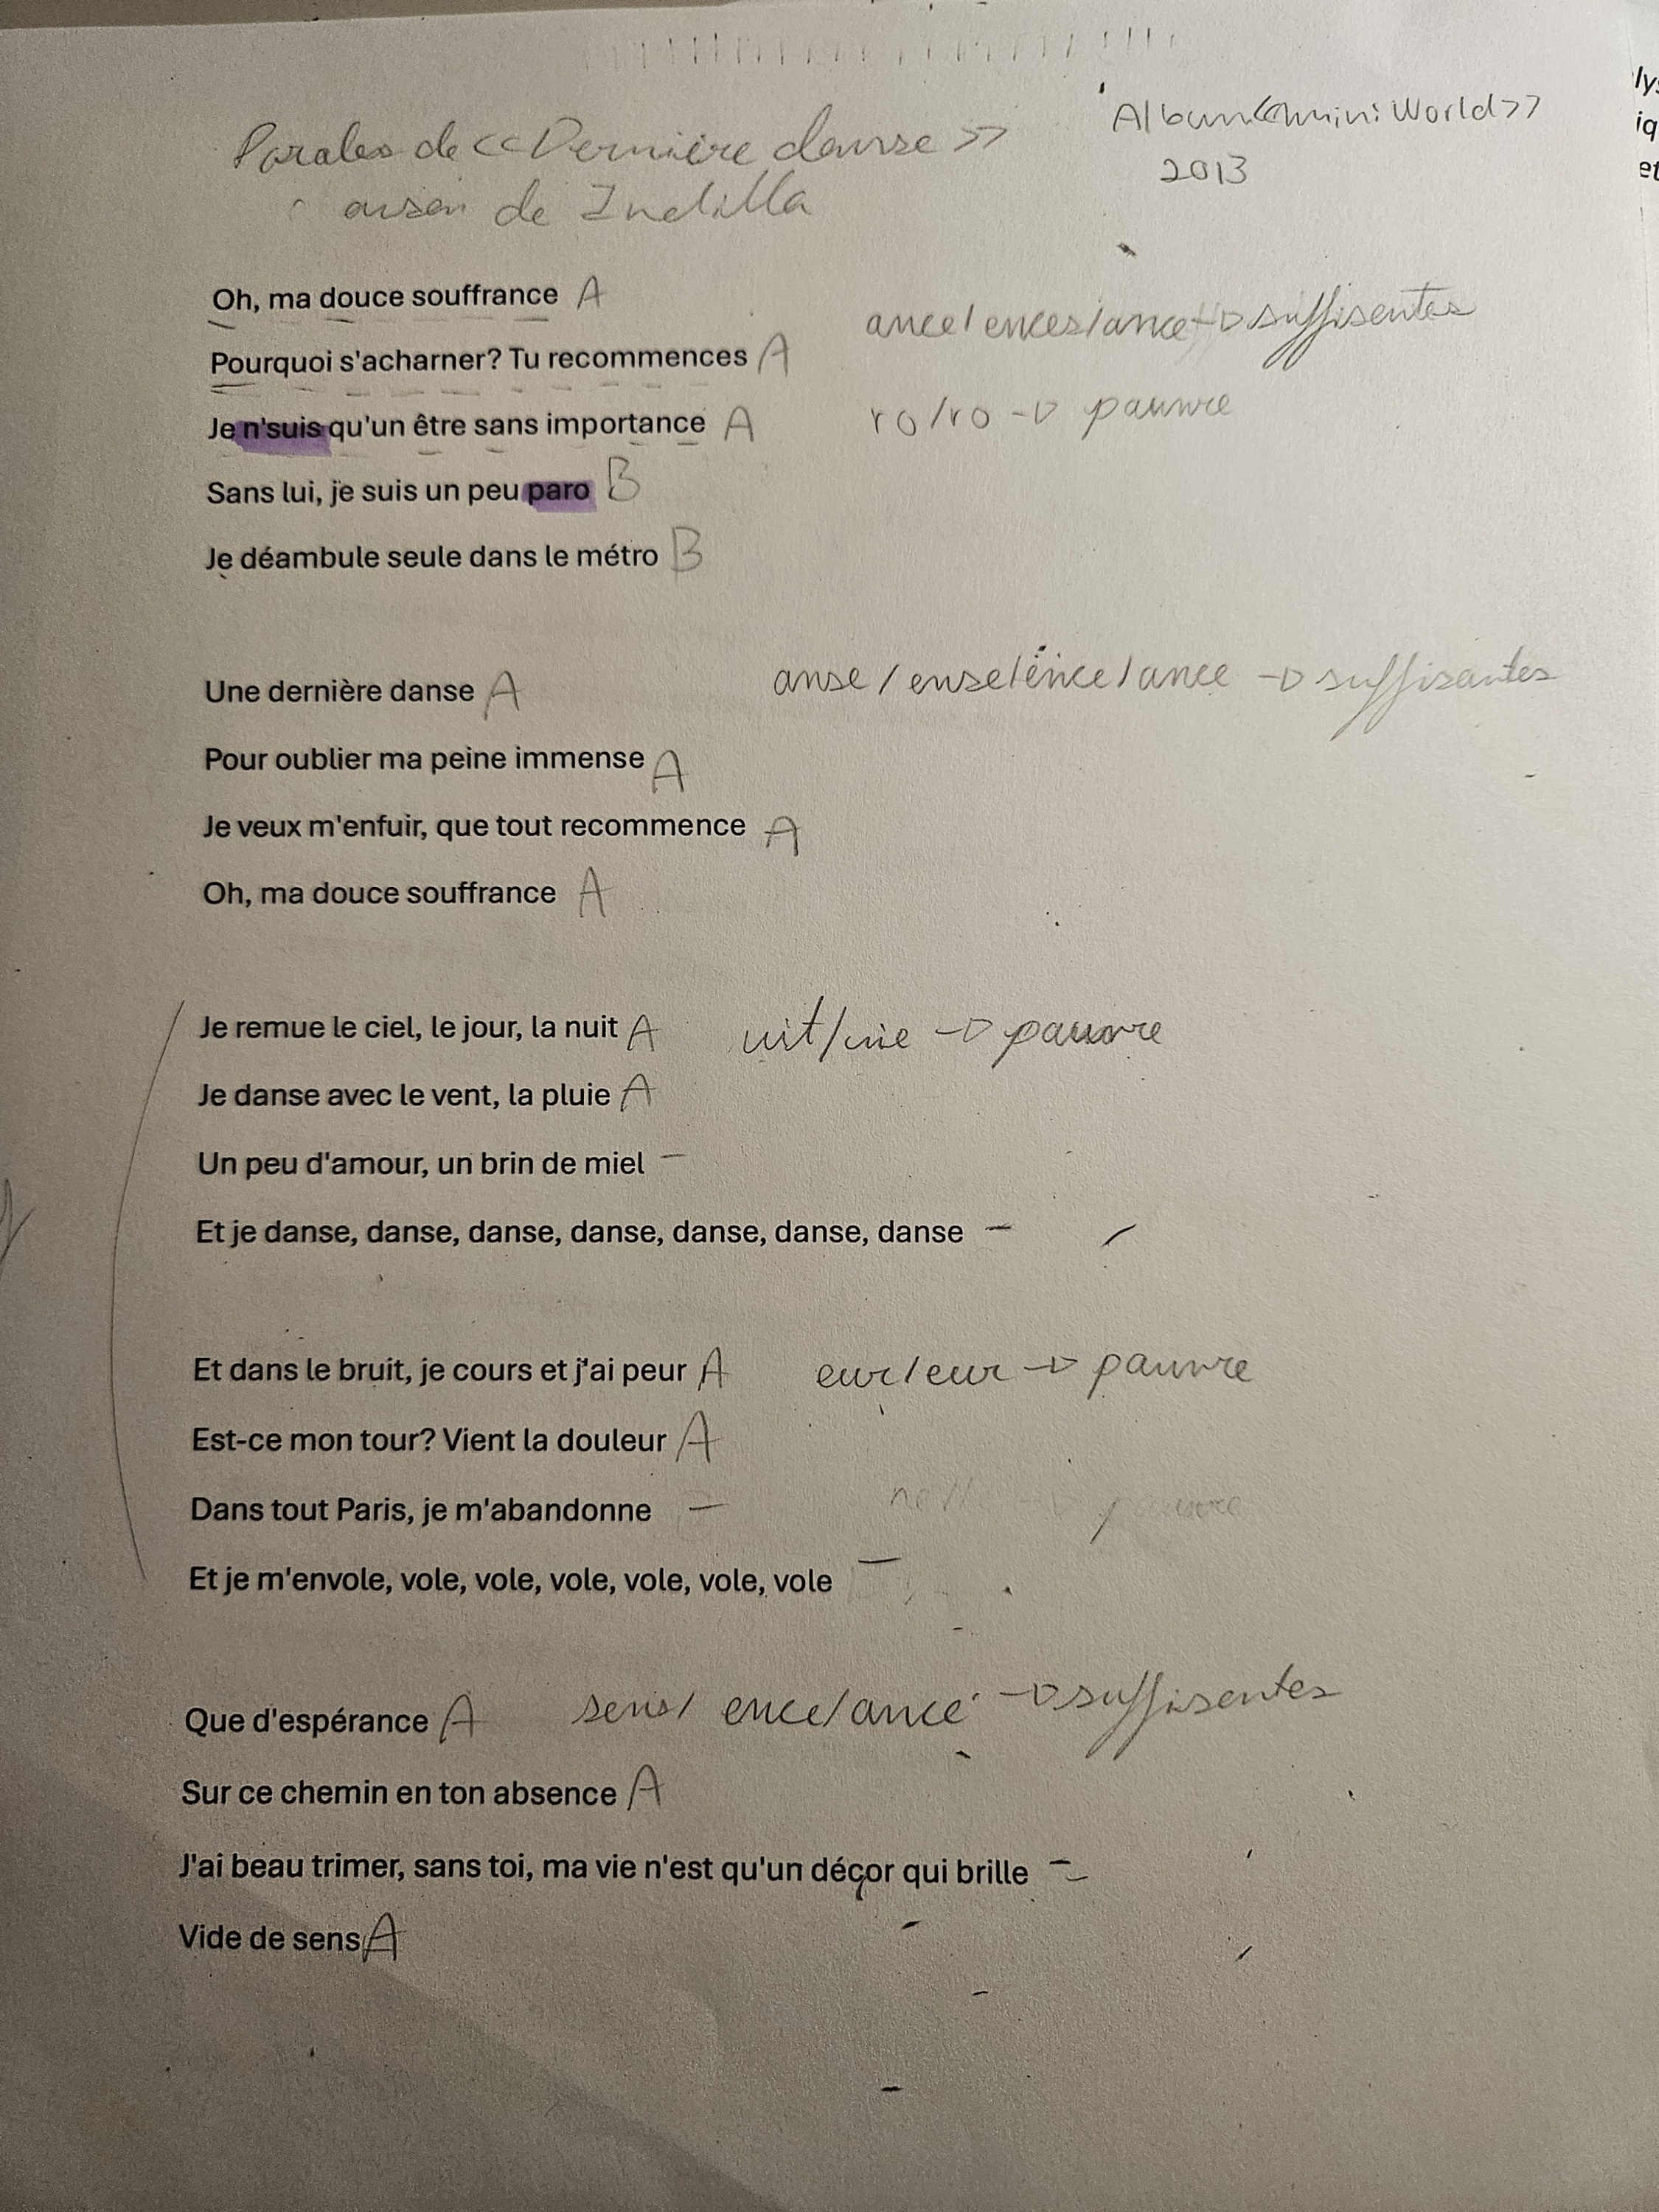 Paroles de <<Dernière danse>>
de Indilla
Album <<mini World>>
2013
lys
iq
et
Oh, ma douce souffrance A
ance/ences/ance -> suffisentes
Pourquoi s'acharner? Tu recommences A
Je n'suis qu'un être sans importance A
ro/ro -> pauvre
Sans lui, je suis un peu paro B
Je déambule seule dans le métro B
Une dernière danse A
anse/ense/ence/ance -> suffisantes
Pour oublier ma peine immense A
Je veux m'enfuir, que tout recommence A
Oh, ma douce souffrance A
Je remue le ciel, le jour, la nuit A
uit/uie -> pauvre
Je danse avec le vent, la pluie A
Un peu d'amour, un brin de miel -
Et je danse, danse, danse, danse, danse, danse, danse -
Et dans le bruit, je cours et j'ai peur A
eur/eur -> pauvre
Est-ce mon tour? Vient la douleur A
Dans tout Paris, je m'abandonne -
Et je m'envole, vole, vole, vole, vole, vole, vole -
Que d'espérance A
sens/ence/ance -> suffisentes
Sur ce chemin en ton absence A
J'ai beau trimer, sans toi, ma vie n'est qu'un déçor qui brille -
Vide de sens A